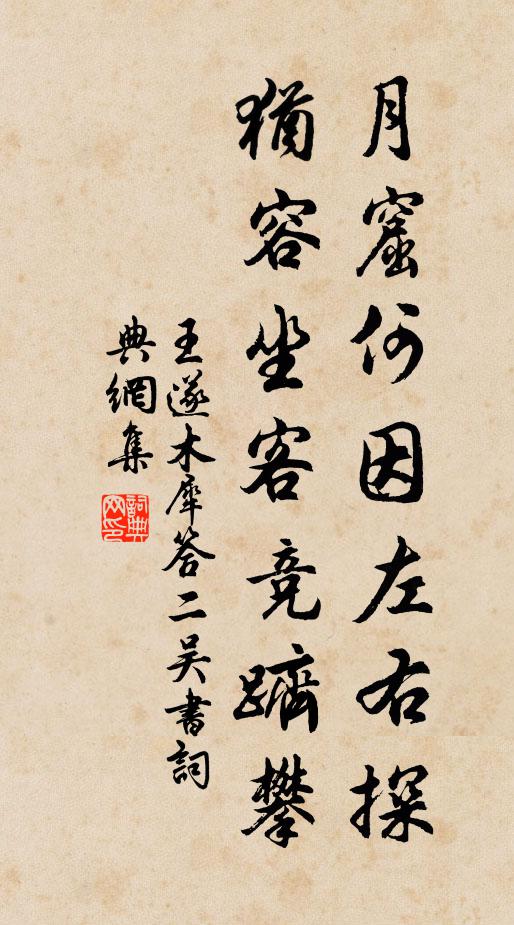 月窟何因左右探
猶容坐客競躋攀
王遂木犀答二吴書詞
典網集
詞典网印